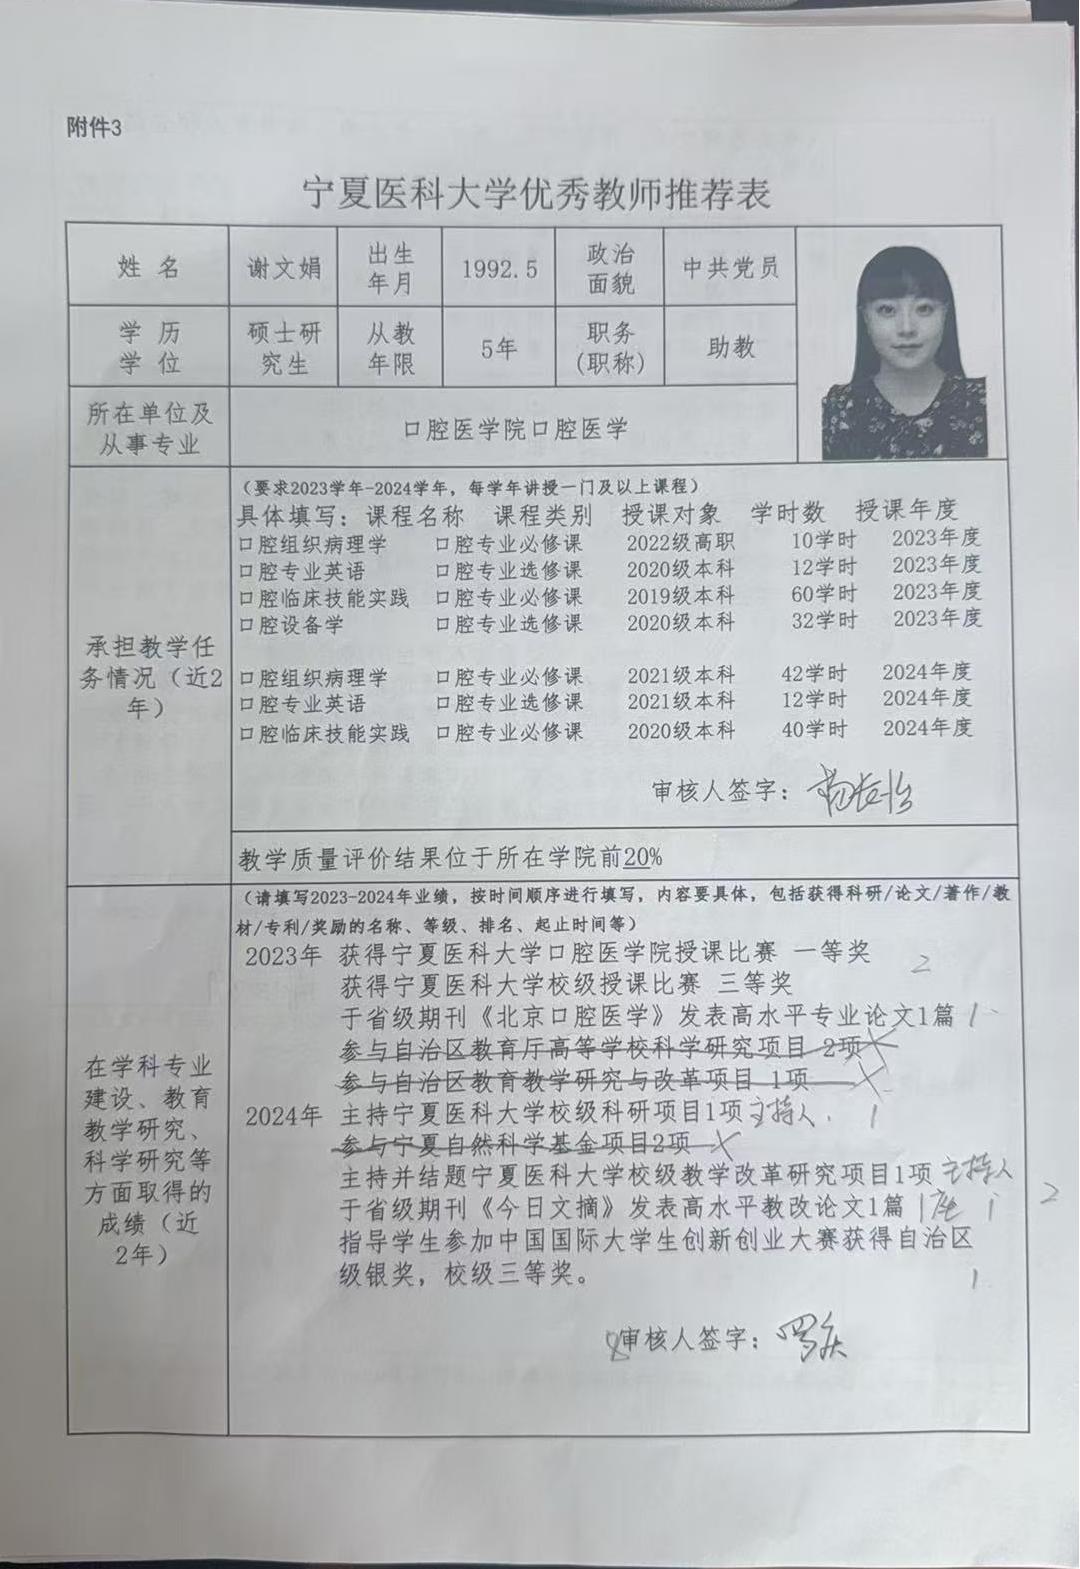 附件3
宁夏医科大学优秀教师推荐表
姓 名 谢文娟 出生年月 1992.5 政治面貌 中共党员
学 历 学 位 硕士研究生 从教年限 5年 职务(职称) 助教
所在单位及从事专业 口腔医学院口腔医学
承担教学任务情况（近2年）
（要求2023学年-2024学年，每学年讲授一门及以上课程）
具体填写：课程名称 课程类别 授课对象 学时数 授课年度
口腔组织病理学 口腔专业必修课 2022级高职 10学时 2023年度
口腔专业英语 口腔专业选修课 2020级本科 12学时 2023年度
口腔临床技能实践 口腔专业必修课 2019级本科 60学时 2023年度
口腔设备学 口腔专业选修课 2020级本科 32学时 2023年度
口腔组织病理学 口腔专业必修课 2021级本科 42学时 2024年度
口腔专业英语 口腔专业选修课 2021级本科 12学时 2024年度
口腔临床技能实践 口腔专业必修课 2020级本科 40学时 2024年度
审核人签字：
教学质量评价结果位于所在学院前20%
在学科专业建设、教育教学研究、科学研究等方面取得的成绩（近2年）
（请填写2023-2024年业绩，按时间顺序进行填写，内容要具体，包括获得科研/论文/著作/教
材/专利/奖励的名称、等级、排名、起止时间等）
2023年 获得宁夏医科大学口腔医学院授课比赛 一等奖 2
获得宁夏医科大学校级授课比赛 三等奖
于省级期刊《北京口腔医学》发表高水平专业论文1篇 1
参与自治区教育厅高等学校科学研究项目 2项
参与自治区教育教学研究与改革项目 1项
2024年 主持宁夏医科大学校级科研项目1项 主持人. 1
参与宁夏自然科学基金项目2项
主持并结题宁夏医科大学校级教学改革研究项目1项 主持人
于省级期刊《今日文摘》发表高水平教改论文1篇 1 2
指导学生参加中国国际大学生创新创业大赛获得自治区
级银奖，校级三等奖。 1
8 审核人签字：